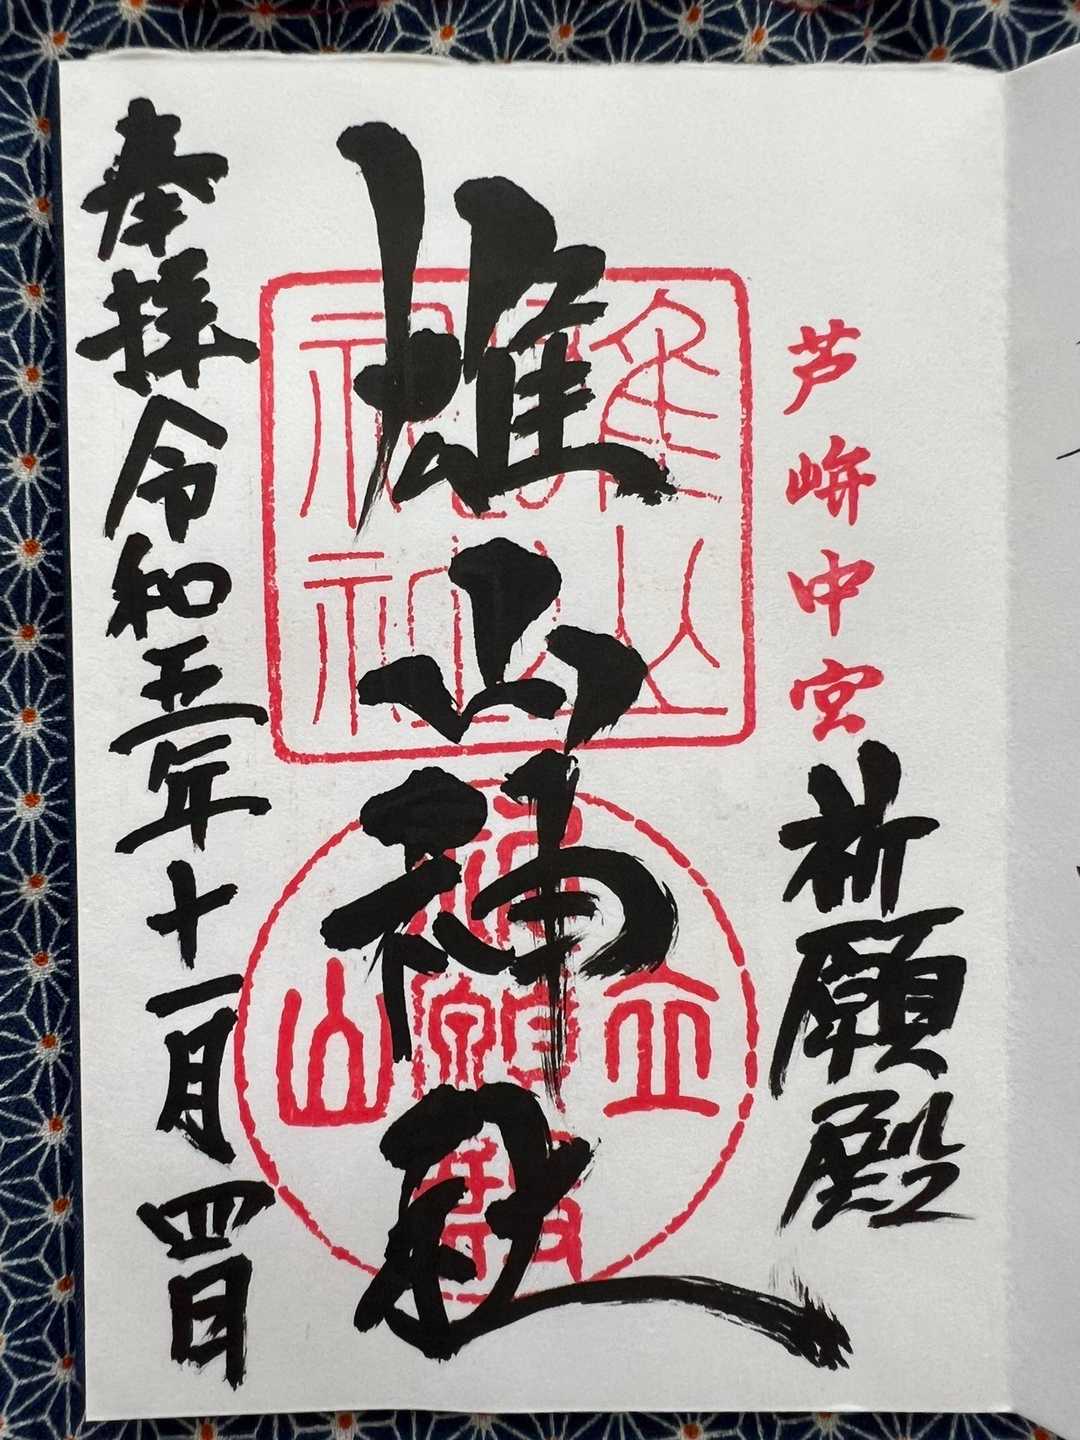 芦峅中宮
祈願殿
雄山神社
雄山
神社
立山
祈願殿
奉拝 令和五年十一月四日